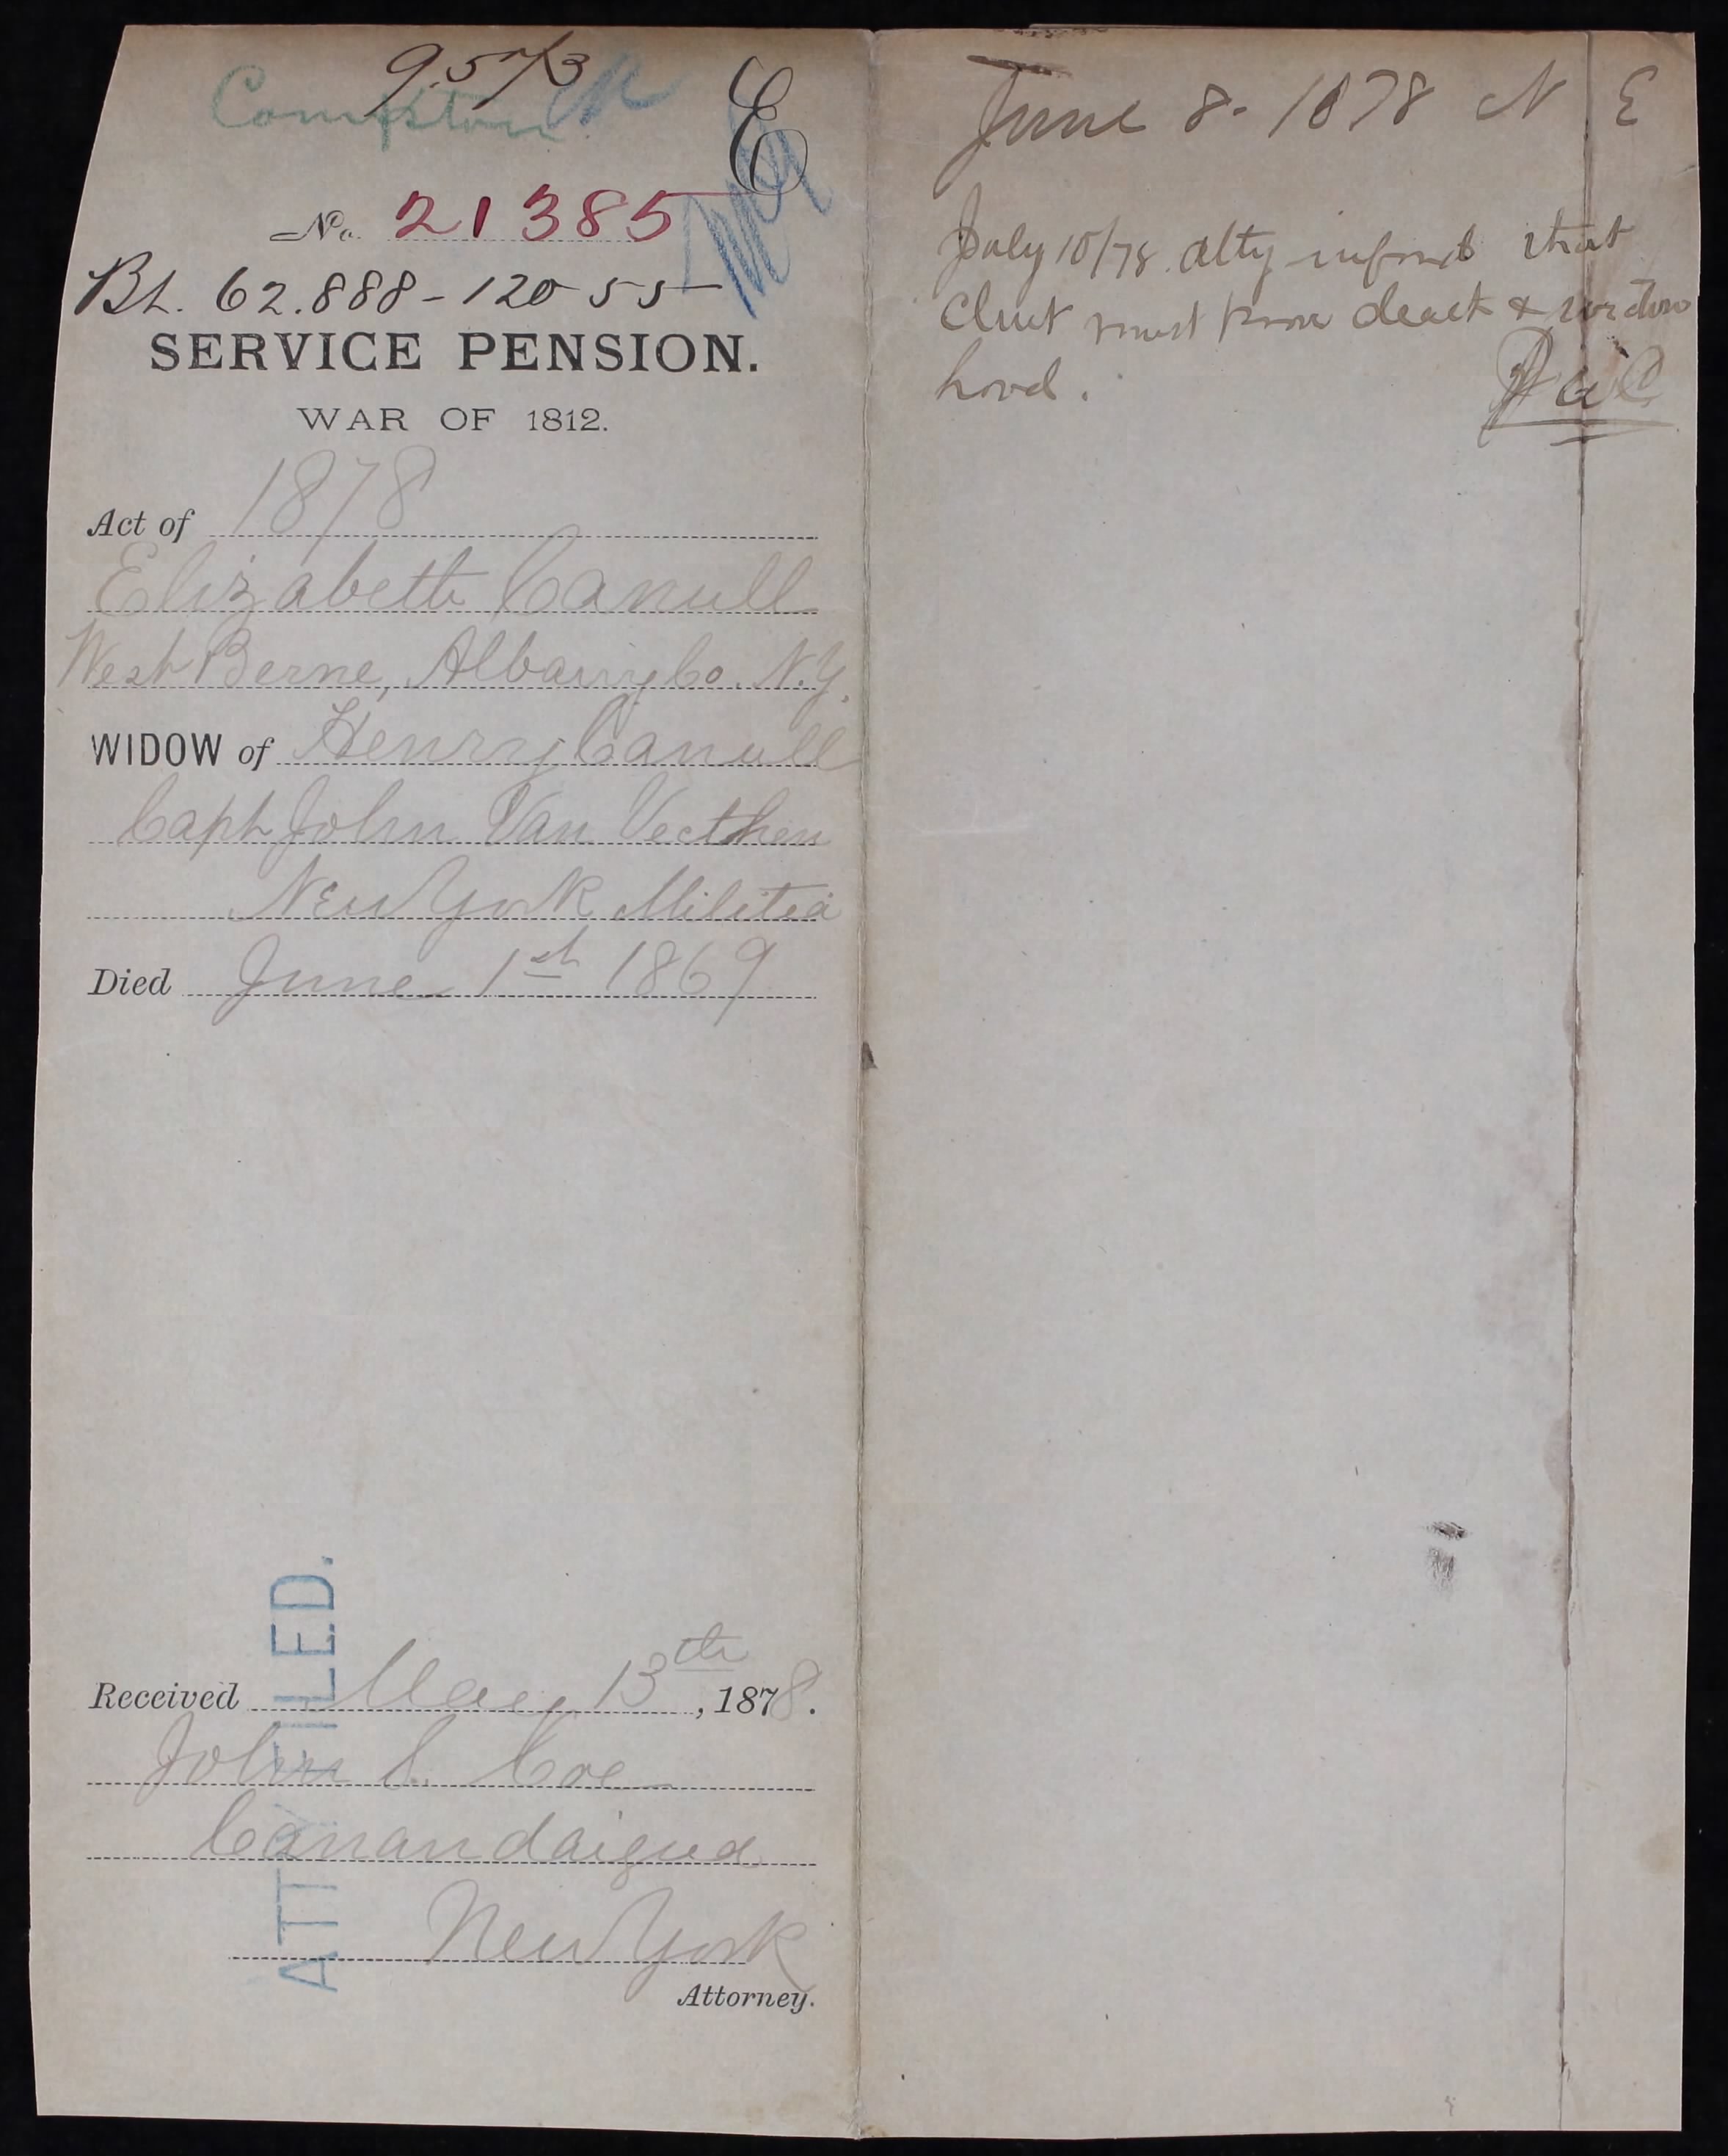 9573
Compton
E
No. 21385
Bt. 62.888 - 120 - 55
SERVICE PENSION.
WAR OF 1812.
Act of 1878
Elizabeth Canull
West Berne, Albany Co. N.Y.
WIDOW of Henry Canull
Capt John Van Vecthen
New York Militia
Died June 1st 1869
Received May 13th, 1878.
John C. Coe
Canandaigua
New York
Attorney.
ATTY FILED.
June 8. 1878 N E
July 10/78. Atty informd that
Clmt must prove death & widow
hood.